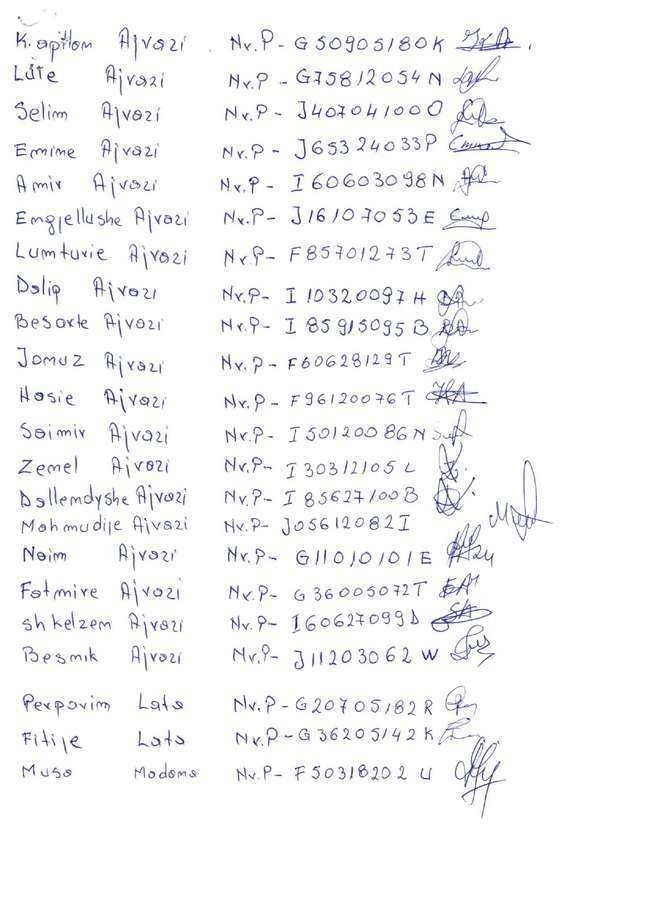 Kapllom Ajvazi Nr.P - G50905180K
Lute Ajvazi Nr.P - G75812054N
Selim Ajvazi Nr.P - J40704100O
Emime Ajvazi Nr.P - J65324033P
Amir Ajvazi Nr.P - I60603098N
Emgjellushe Ajvazi Nr.P - J16107053E
Lumturie Ajvazi Nr.P - F85701273T
Dalip Ajvazi Nr.P - I10320097H
Besarte Ajvazi Nr.P - I85915095B
Jamuz Ajvazi Nr.P - F60628129T
Hasie Ajvazi Nr.P - F96120076T
Saimir Ajvazi Nr.P - I50120086N
Zemel Ajvazi Nr.P - I30312105L
Dallemdyshe Ajvazi Nr.P - I85627100B
Mahmudije Ajvazi Nr.P - J05612082I
Naim Ajvazi Nr.P - G11010101E
Fatmire Ajvazi Nr.P - G36005072T
shkelzem Ajvazi Nr.P - I60627099D
Besmik Ajvazi Nr.P - J11203062W
Perparim Lata Nr.P - G20705182R
Fitije Lata Nr.P - G36205142K
Musa Madama Nr.P - F50318202U